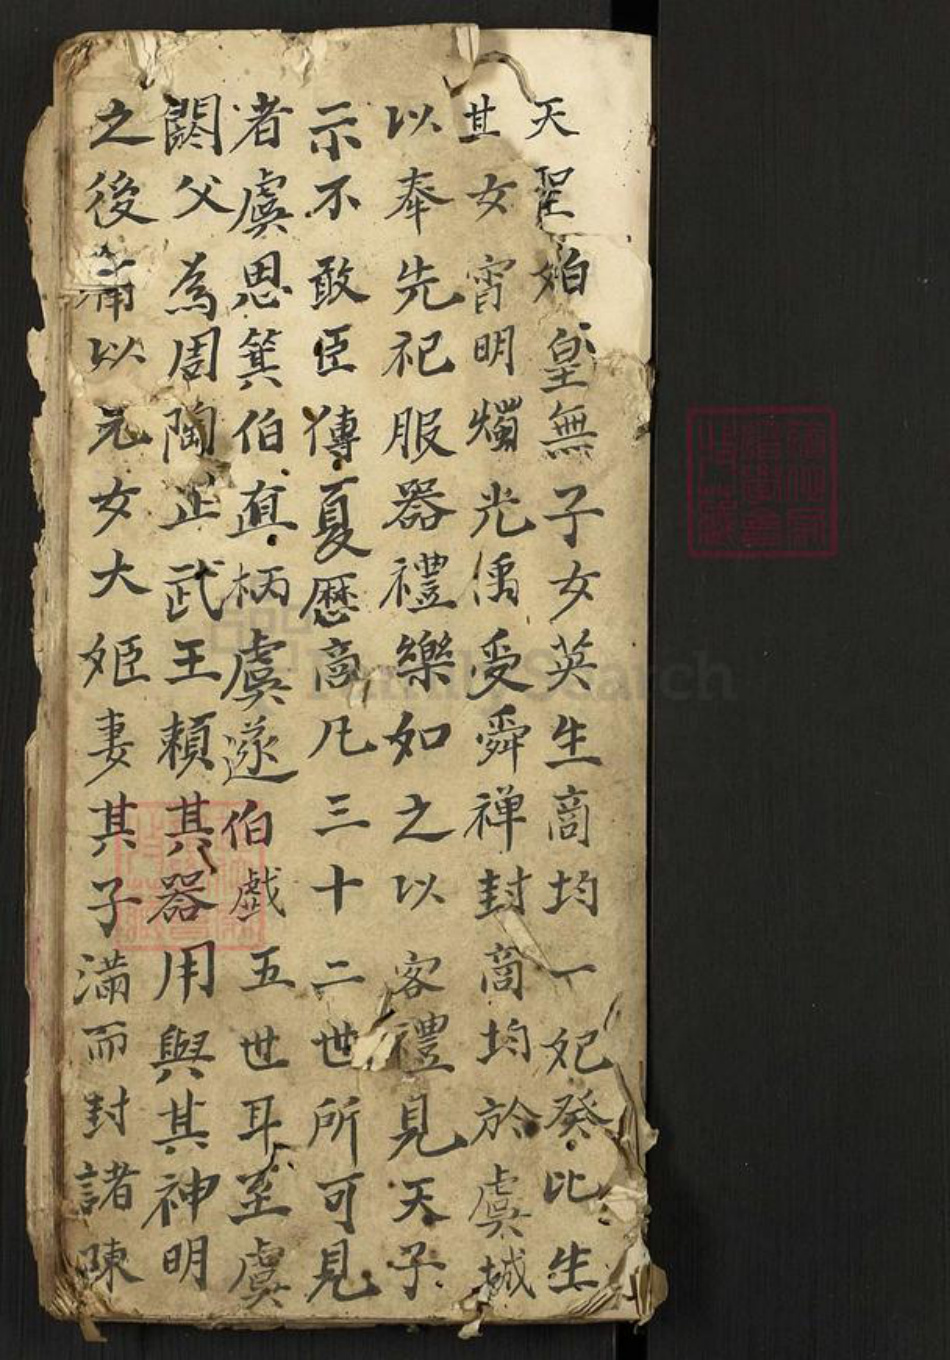 天聖始皇無子女英生商均一妃癸比生
其女宵明燭光俻受舜禅封商均於虞城
以奉先祀服器禮樂如之以客禮見天子
示不敢臣傳夏歷商凢三十二世所可見
者虞思箕伯直柄虞遂伯戲五世耳至虞
閼父為周陶正武王頼其器用與其神明
之後以元女大姬妻其子滿而封諸陳
FamilySearch